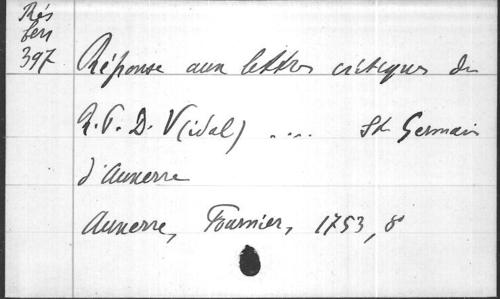 Rés
fen
397
Réponse aux lettres critiques du
R. P. D. V(idal) .... St Germain
d'Auxerre
Auxerre, Fournier, 1753, 8°